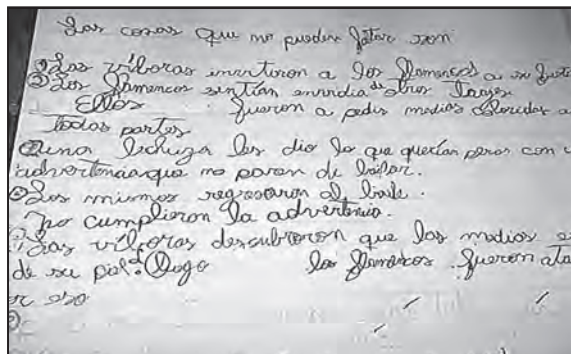 Las cosas que no pueden fatar son
Las víboras invitaron a los flamencos a su
Los flamencos sentían envidia de otros
Ellos fueron a pedir medias coloridas a
todas partes
una lechuza les dio lo que querían peros con
advertencia que no paren de bailar.
Los mismos regresaron al baile.
no cumplieron la advertencia.
Las víboras descubrieron que las medias
de su piel. Luego los flamencos fueron
eso